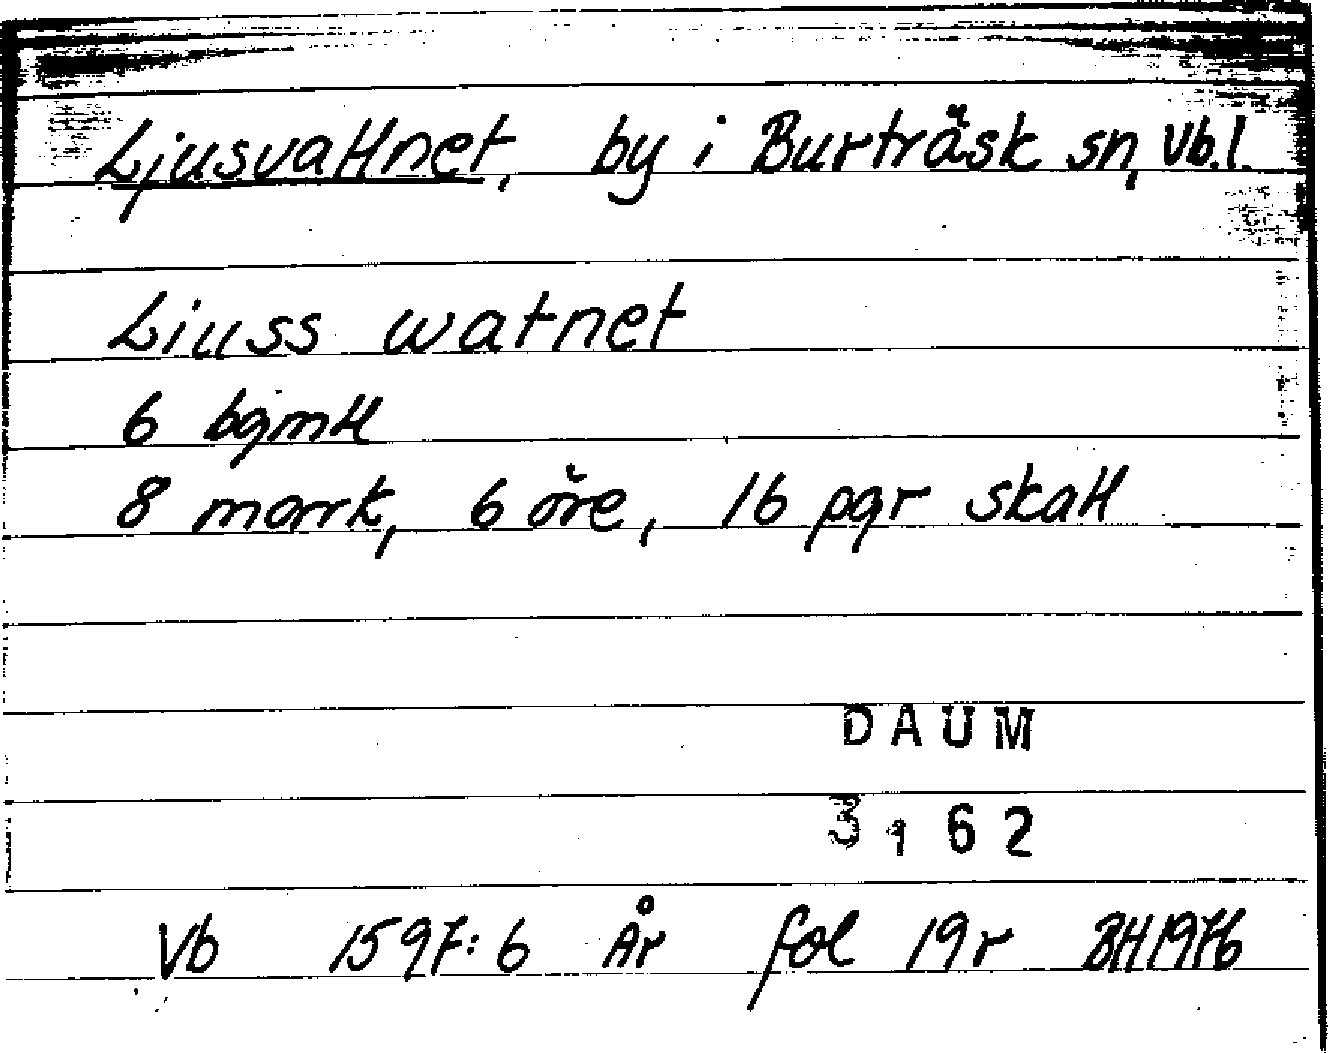 Ljusvattnet, by i Burträsk sn, Vb.l.
Liuss watnet
6 bgmtl
8 mark, 6 öre, 16 pgr skatt
DAUM
3162
Vb 1597:6 År fol 19r BH1976